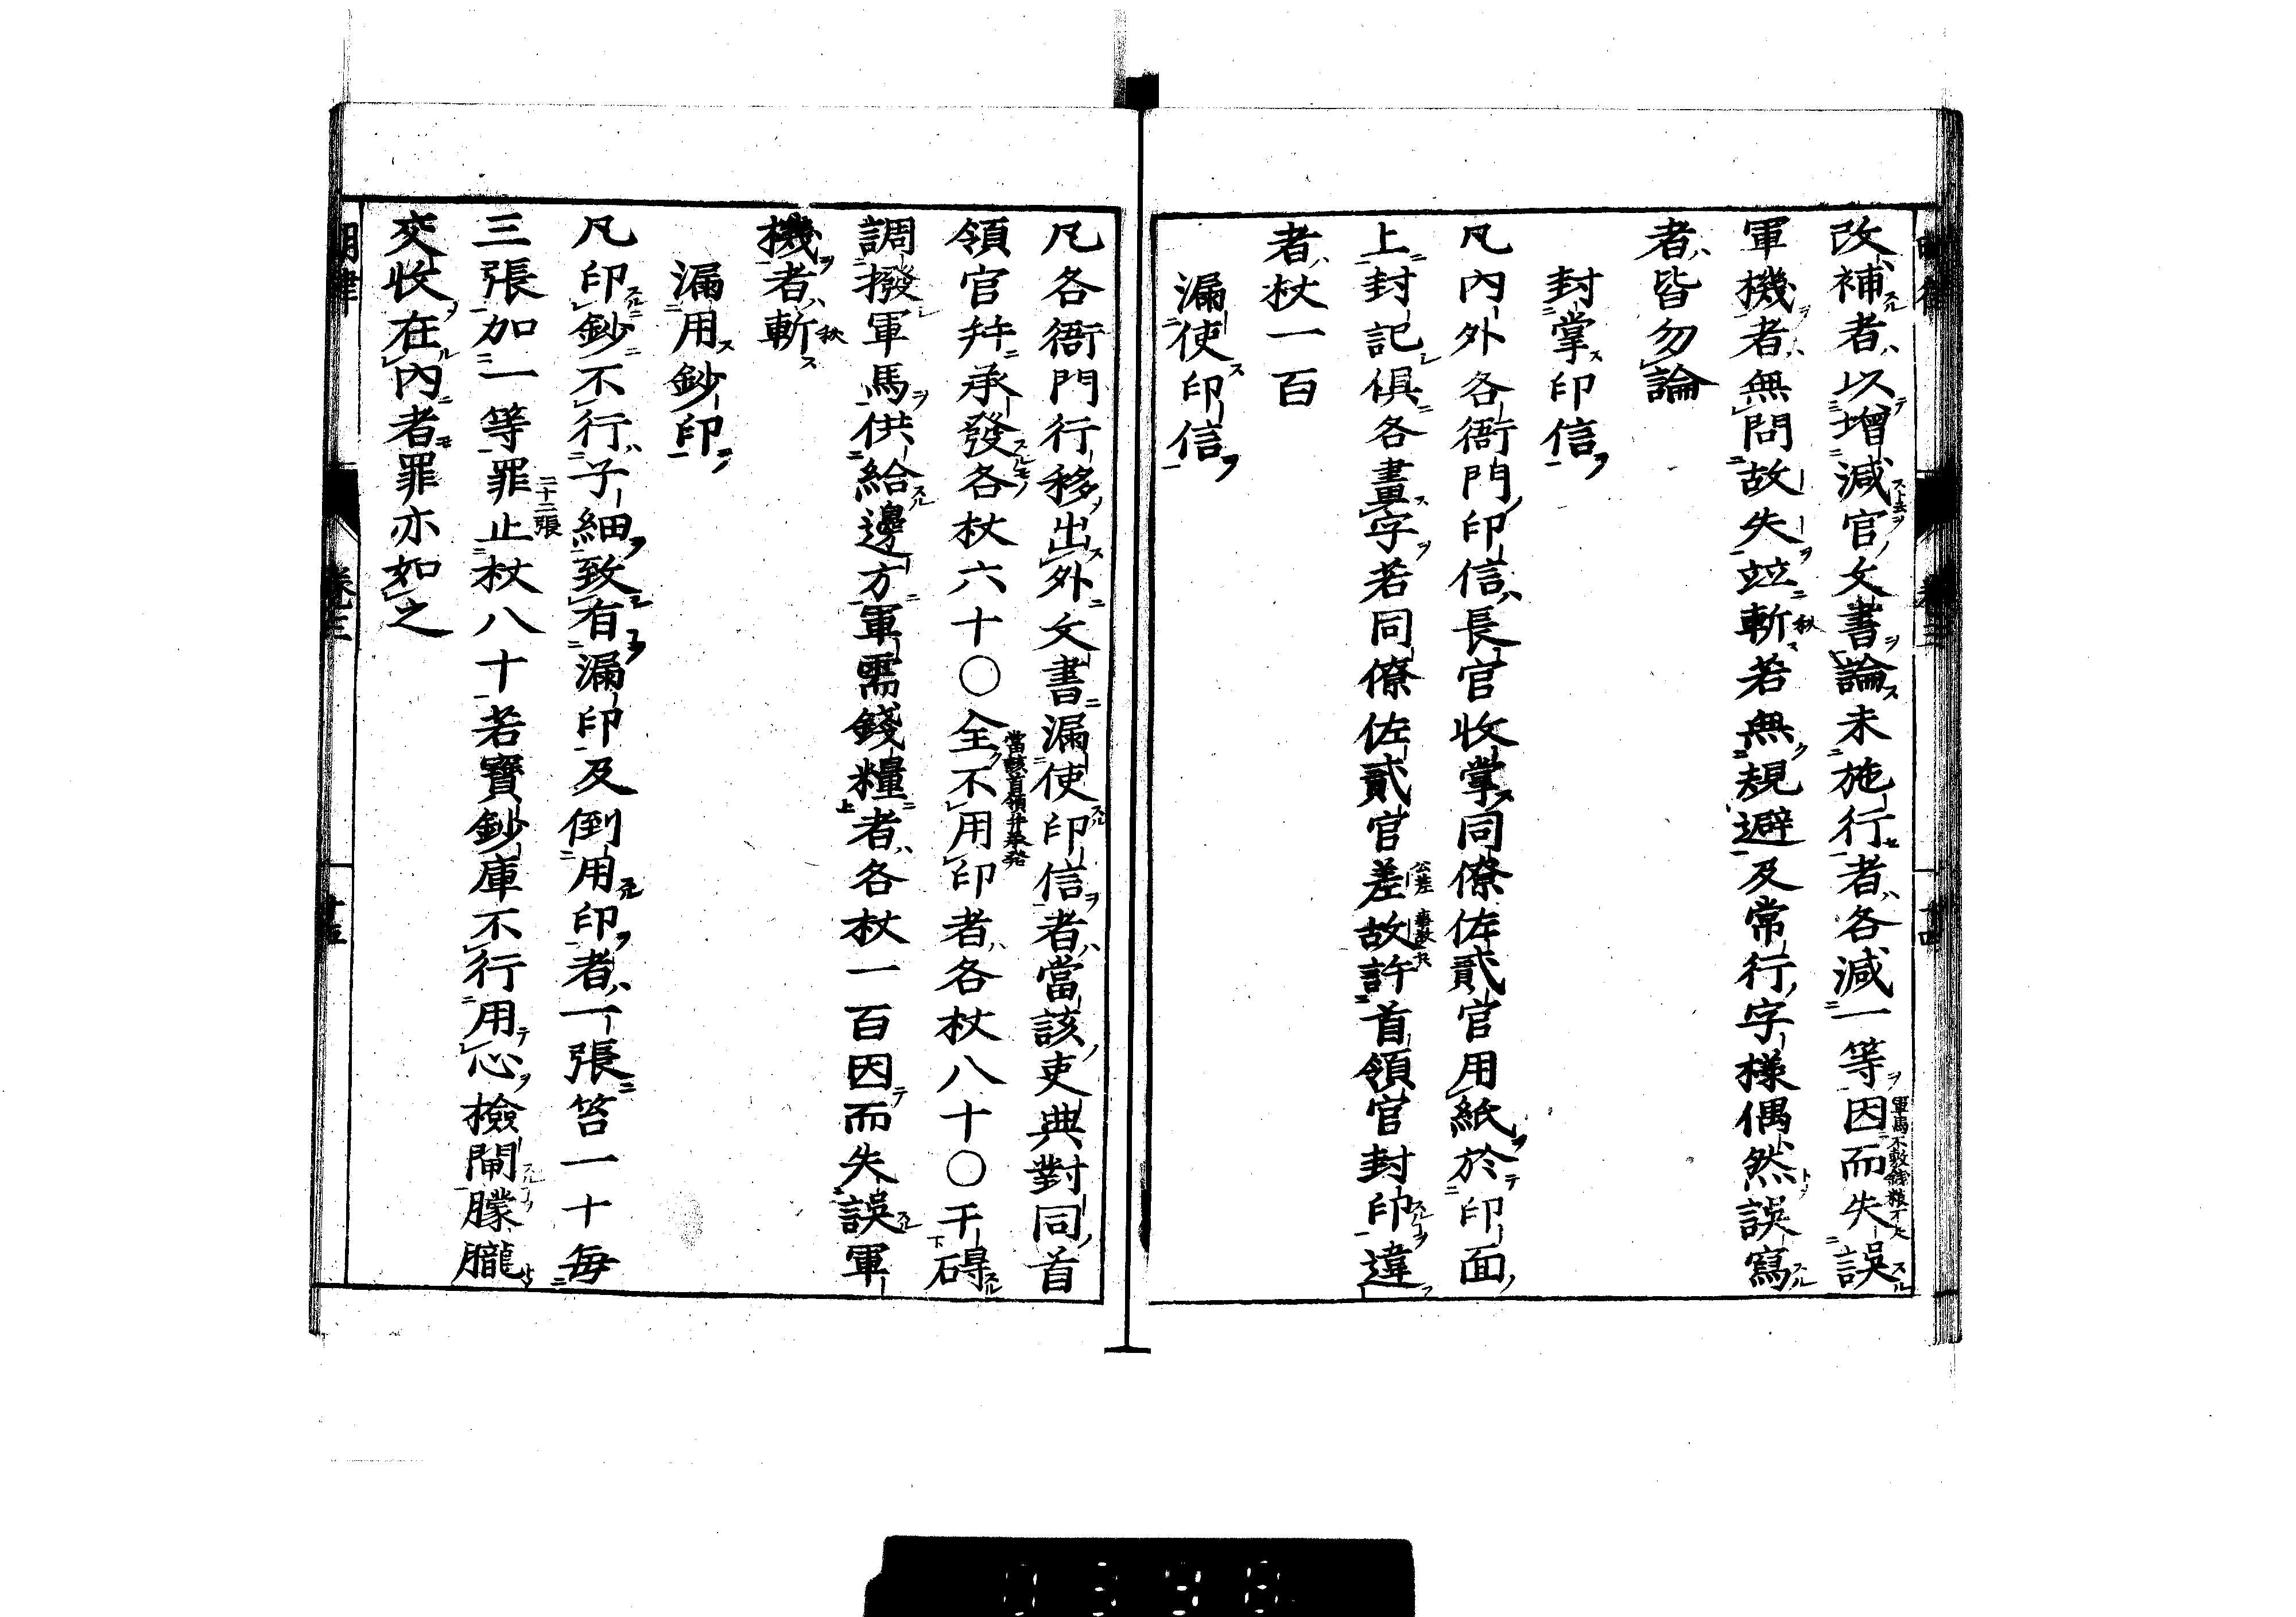 改補者以增減官文書論未施行者各減一等因而失誤
軍機者無問故失竝斬若無規避及常行字樣偶然誤寫
者皆勿論
封掌印信
凡內外各衙門印信長官收掌同僚佐貳官用紙於印面
上封記俱各畫字若同僚佐貳官差故許首領官封印違
者杖一百
漏使印信
凡各衙門行移出外文書漏使印信者當該吏典對同首
領官幷承發各杖六十〇全不用印者各杖八十〇干碍
調撥軍馬供給邊方軍需錢糧者各杖一百因而失誤軍
機者斬
漏用鈔印
凡印鈔不行子細致有漏印及倒用印者一張笞一十每
三張加一等罪止杖八十若寶鈔庫不行用心檢閘朦朧
交收在內者罪亦如之